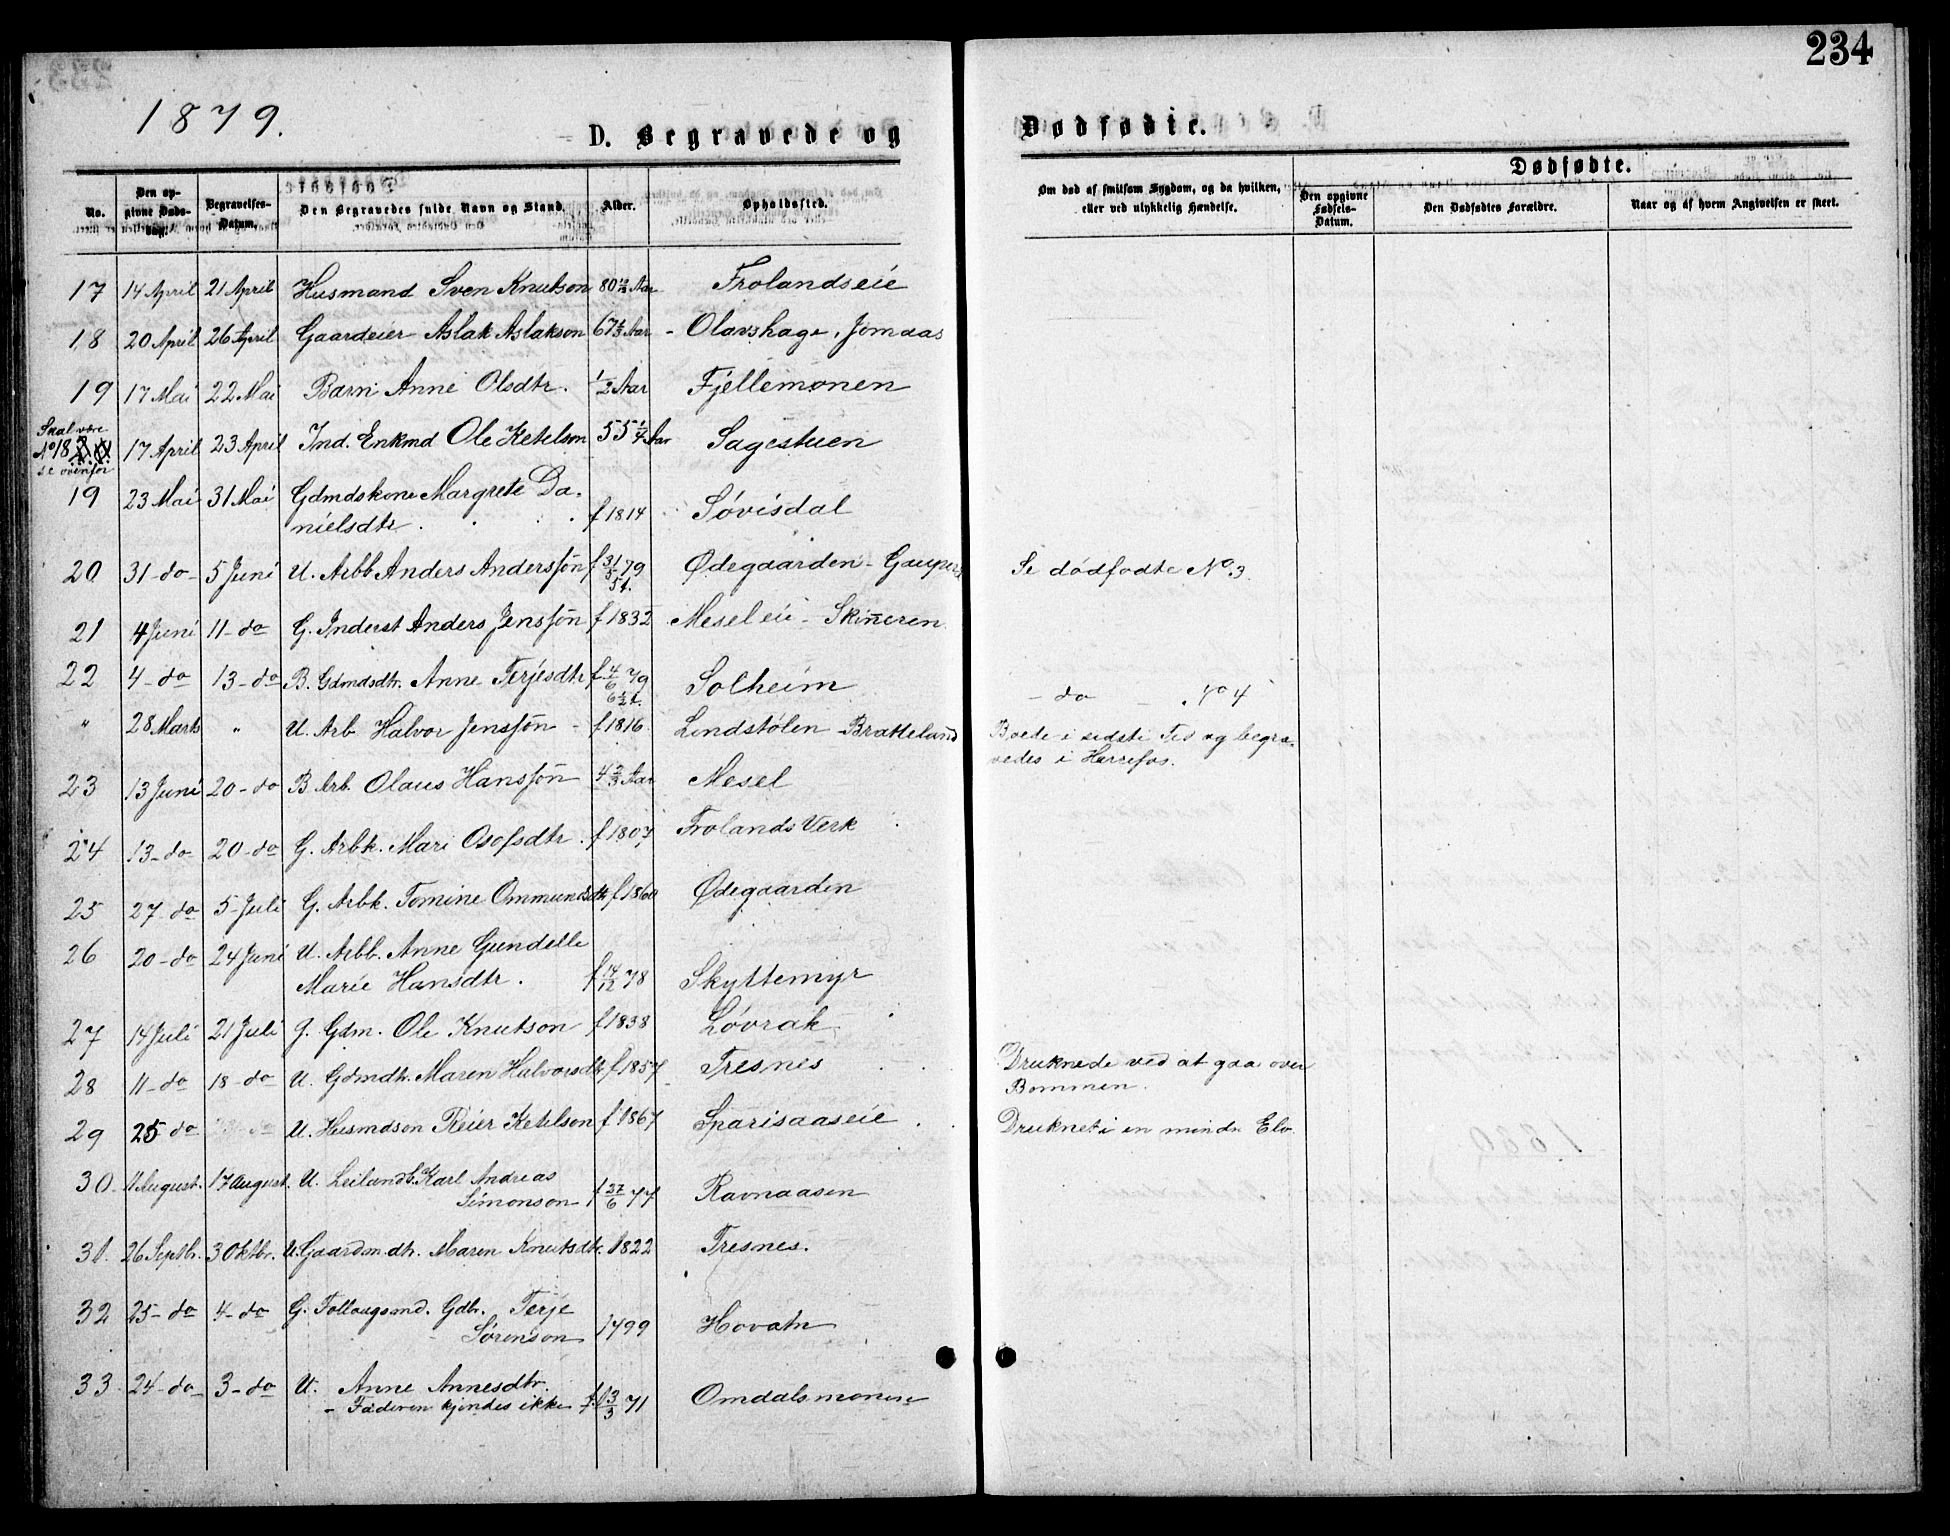 234
1879.
D. Begravede og Dødfødte.
Dødfødte.
No.
Den opgivne Døds-Dag.
Begravelses-Datum.
Den Begravedes fulde Navn og Stand.
Alder.
Opholdssted.
Om død af smitsom Sygdom, og da hvilken, eller ved ulykkelig Hændelse.
Den opgivne Fødsels-Datum.
Den Dødfødtes Forældre.
Naar og af hvem Angivelsen er skeet.
17 14 April 21 April Husmand Sven Knutson 80 Aar Frolandseie
18 20 April 26 April Gaardeier Aslak Aslakson 67 Aar - Olavshage, Jomaas
19 17 Mai 22 Mai Barn Anne Olsdtr. 1/2 Aar Fjellemonen
Skal være
No 18 17 April 23 April Ind. Enkmd Ole Ketelson 55 1/4 Aar Sagestuen
se ovenfor
19 23 Mai 31 Mai Gdmdskone Margrete Da-
nielsdtr. f 1814 Søvisdal
20 31 - do - 5 Juni U. Arbb Anders Andersøn f 31/5 79 Ødegaarden - Se dødfødte No 3.
5 t.
21 4 Juni 11 - do G. Inderst Anders Jensøn f 1832 Mesel eie - Skineren
22 4 - do 13 - do B. Gdmdsdtr. Anne Terjesdtr f 4/6 79 Solheim - do - No 4
6 1/2 t.
" 28 Marts " U. Arb Halvor Jensøn - f 1816 Lindstølen Bratteland Boede i sidste Tid og begra-
vedes i Herrefos.
23 13 Juni 20 - do B Arb. Olaus Hansøn 4 2/3 Aar Mesel
24 13 - do 20 - do G. Arbk. Mari Osofsdtr. f 1807 Frolands Verk
25 27 - do 5 - Juli G. Arbk. Tomine Ommundsdtr f 1860 Ødegaarden
26 20 - do 24 Juni U. Arbb. Anne Gundelle
Marie Hansdtr. f 14/12 78 Skyttemyr
27 14 Juli 21 Juli G. Gdm. Ole Knutson f 1838 Løvrak
28 11 - do 18 - do U. Gdmdtr. Maren Halvorsdtr f 1857 Tresnes Druknede ved at gaa over
Bommen.
29 25 do U. Husmdson Reier Ketelson f 1867 Sparisaaseie Druknet i en mindre Elv.
30 11 August. 17 August. U. Leilandb. Karl Andreas
Simonson f 27/6 77 Ravnaasen
31. 26 Septbr. 3 Oktbr. U. Gaardm.dtr. Maren Knutsdtr. 1822 Tresnes.
32 25 - do 4 - do G. Follaugsmd. Gdbr. Terje
Sørenson 1799 Hovatn
33 24 - do 3 - do U. Anne Annesdtr.
- Faderen kjendes ikke f 13/3 71 Omdalsmonen